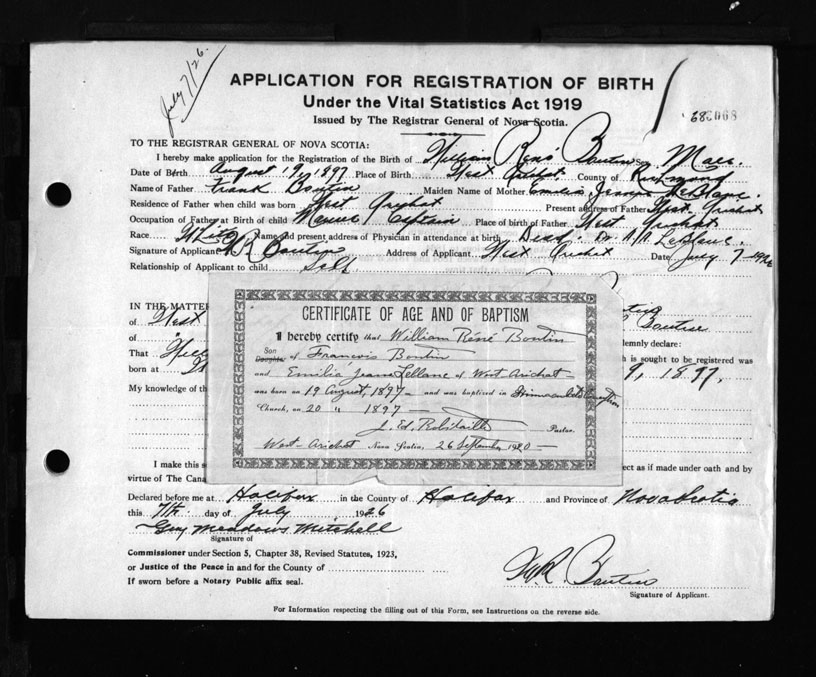 July 7/26.
APPLICATION FOR REGISTRATION OF BIRTH
Under the Vital Statistics Act 1919
Issued by The Registrar General of Nova Scotia.
TO THE REGISTRAR GENERAL OF NOVA SCOTIA:
I hereby make application for the Registration of the Birth of William René Boutin Sex Male.
Date of Birth August 19, 1897 Place of Birth West Arichat County of Richmond
Name of Father Frank Boutin Maiden Name of Mother Emilia Jeanne LeBlanc.
Residence of Father when child was born West Arichat Present address of Father West Arichat
Occupation of Father at Birth of child Master Captain Place of birth of Father West Arichat
Race White Name and present address of Physician in attendance at birth Dead. Dr. LeBlanc.
Signature of Applicant W R Boutin Address of Applicant West Arichat Date July 7-1926
Relationship of Applicant to child Self
IN THE MATTE
of West
of "
Boutin
That
emnly declare:
h is sought to be registered was
born at
9, 1897,
My knowledge of th
CERTIFICATE OF AGE AND OF BAPTISM
I hereby certify that William Réné Boutin
Son Daughter of Francois Boutin
and Emilie Jeanne LeBlanc of West Arichat
was born on 19 August, 1897 and was baptized in Immaculate Conception
Church, on 20 " 1897
J. Ed. Robitaille Pastor.
West-Arichat Nova Scotia, 26 September 1920
I make this s
ect as if made under oath and by
virtue of The Cana
Declared before me at Halifax in the County of Halifax and Province of Nova Scotia
this 7th day of July 1926
Guy Meadows Mitchell
Signature of
Commissioner under Section 5, Chapter 38, Revised Statutes, 1923,
or Justice of the Peace in and for the County of
If sworn before a Notary Public affix seal.
W R Boutin
Signature of Applicant.
For Information respecting the filling out of this Form, see Instructions on the reverse side.